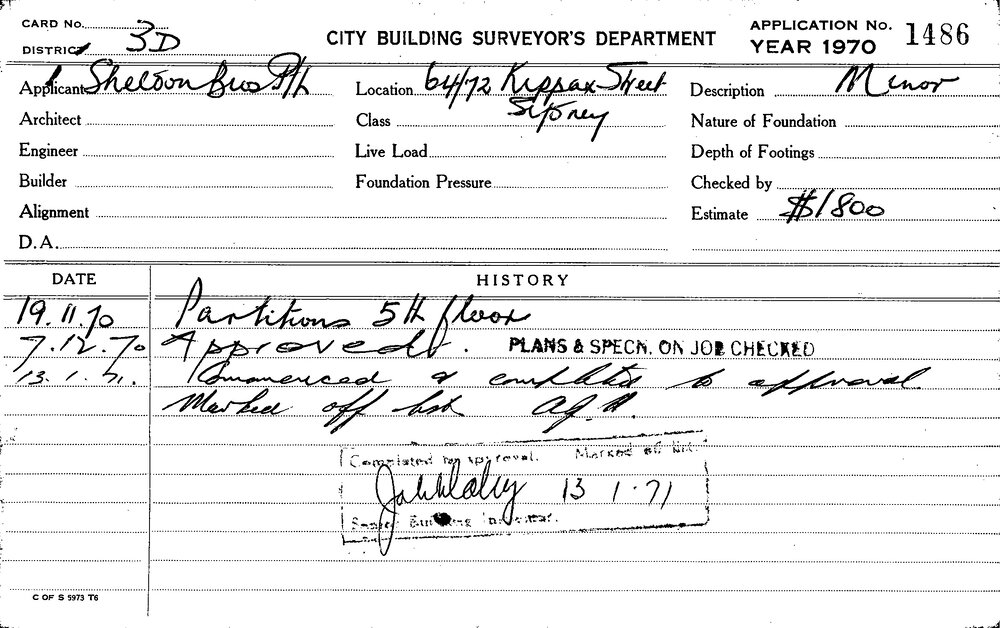 CARD No.
DISTRICT 3D
CITY BUILDING SURVEYOR'S DEPARTMENT
APPLICATION No. 1486
YEAR 1970
Applicant Sheldon Bros P/L
Location 64/72 Kippax Street
Sydney
Description Minor
Architect
Class
Nature of Foundation
Engineer
Live Load
Depth of Footings
Builder
Foundation Pressure
Checked by
Alignment
Estimate $1800
D.A.
DATE HISTORY
19.11.70 Partitions 5th floor
7.12.70 Approved. PLANS & SPECN. ON JOB CHECKED
13.1.71. Commenced & completed to approval
Marked off list
Completed to approval. Marked off list.
13 1.71
Senior Building Inspector.
C OF S 5973 T6